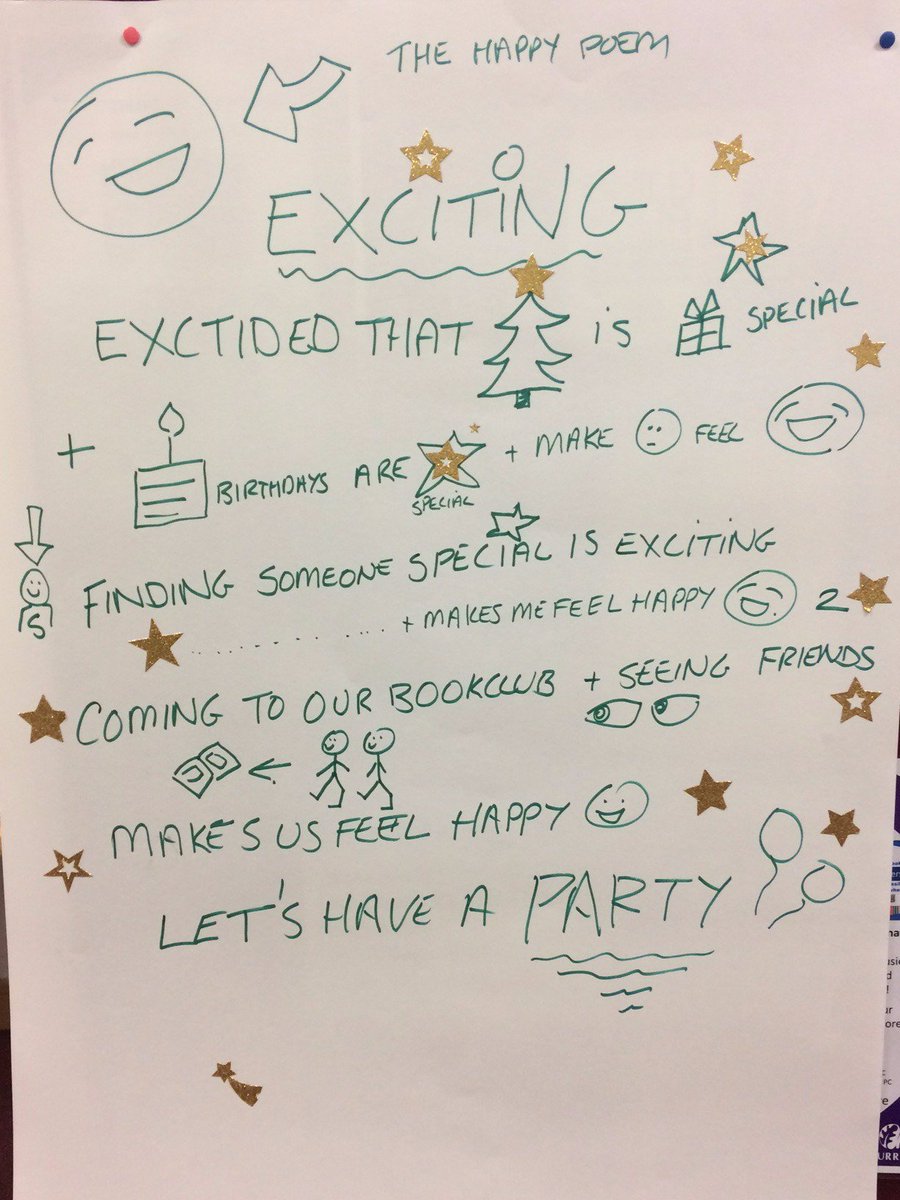 THE HAPPY POEM
EXCITING
EXCTIDED THAT is SPECIAL
+ BIRTHDAYS ARE SPECIAL + MAKE FEEL
S
FINDING SOMEONE SPECIAL IS EXCITING
+ MAKES ME FEEL HAPPY 2
COMING TO OUR BOOKCLUB + SEEING FRIENDS
MAKES US FEEL HAPPY
LET'S HAVE A PARTY